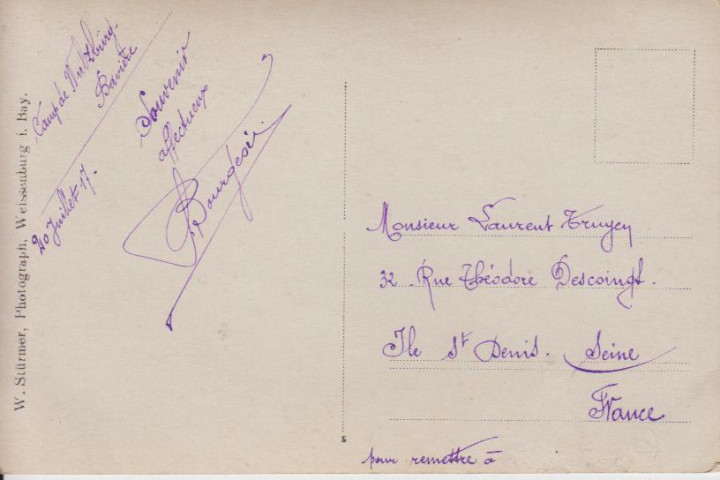 Camp de Wultzburg.
Bavière
20 Juillet 17.
Souvenir
affectueux
Bourgeois
W. Stürmer, Photograph, Weissenburg i. Bay.
Monsieur Laurent Truyen
32. Rue Théodore Descoingt.
Ile St Denis. Seine
France
pour remettre à